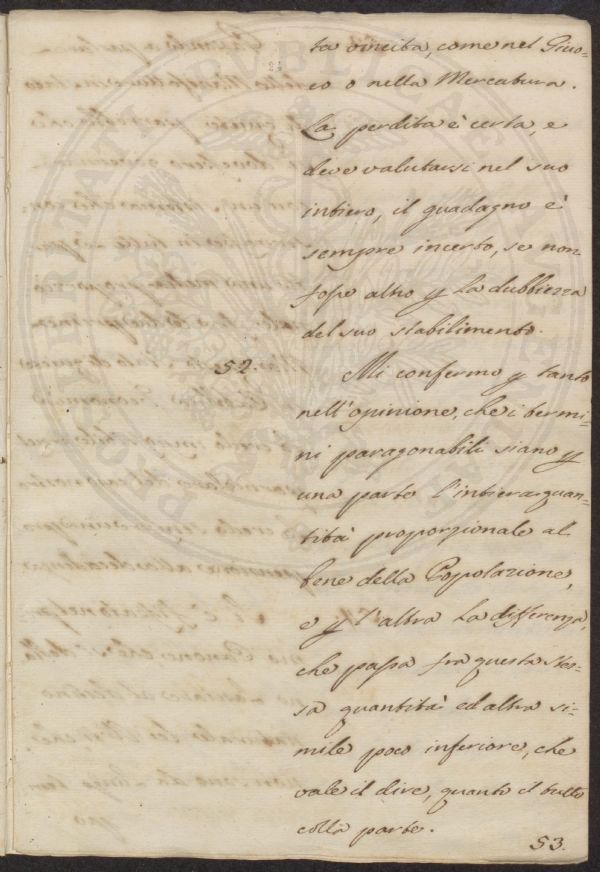 ta vincita, come nel Giuo-
co o nella Mercatura.
La perdita è certa, e
deve valutarsi nel suo
intiero, il guadagno è
sempre incerto, se non
fosse altro p la dubbiezza
del suo stabilimento.
52. Mi confermo p tanto
nell'opinione, che i termi-
ni paragonabili siano p
una parte l'intiera quan-
tità proporzionale al
bene della Popolazione,
e p l'altra la differenza,
che passa fra questa stes-
sa quantità ed altra si-
mile poco inferiore, che
vale il dire, quanto il tutto
colla parte.
53.